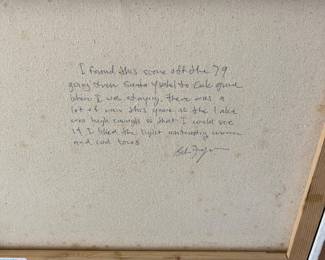 I found this scene off the 79
going from Santa Ysabel to Lake
where I was staying, there was a
lot of rain this year so the lake
was high enough so that I could see
it I liked the light contrasting warm
and cool tones